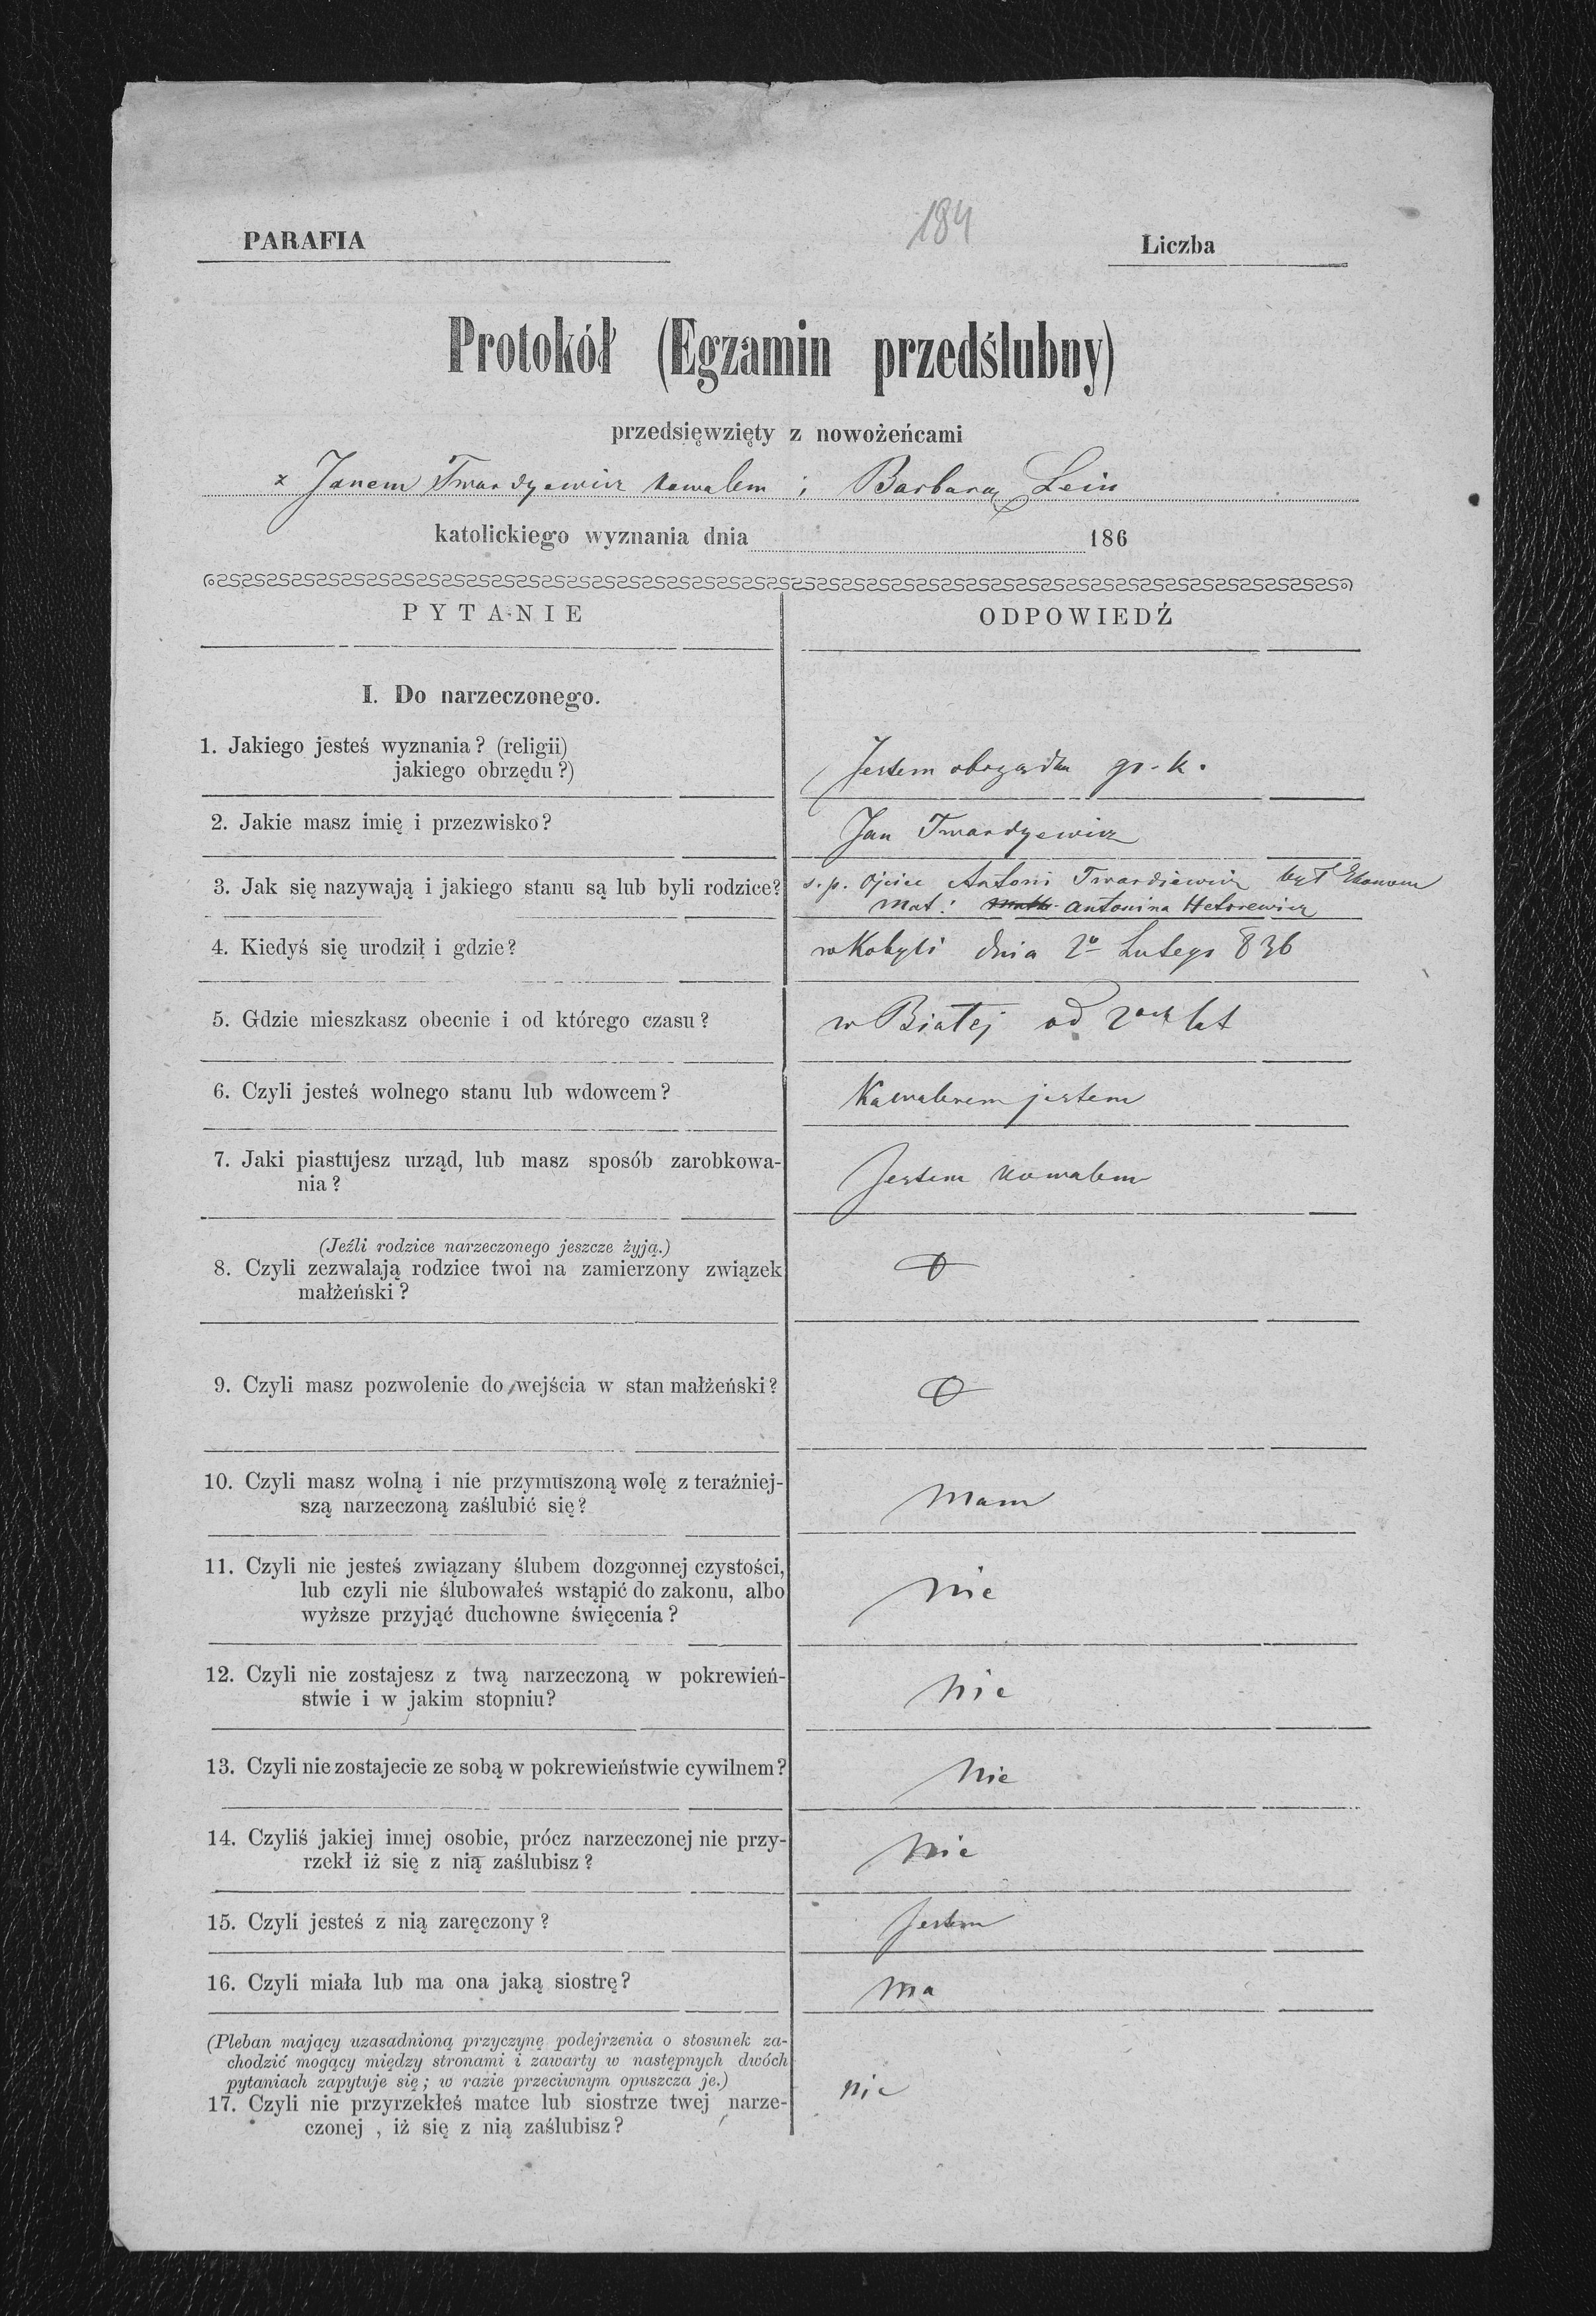 184
PARAFIA
Liczba
Protokół (Egzamin przedślubny)
przedsięwzięty z nowożeńcami
z Janem Twardyewicz kowalem i Barbarą Lein
katolickiego wyznania dnia 186
PYTANIE
ODPOWIEDŹ
I. Do narzeczonego.
1. Jakiego jesteś wyznania? (religii)
jakiego obrzędu?)
Jestem obrządku gr. k.
2. Jakie masz imię i przezwisko?
Jan Twardyewicz
3. Jak się nazywają i jakiego stanu są lub byli rodzice?
s. p. Ojciec Antoni Twardiewicz był Ekonom
Mat: Antonina
4. Kiedyś się urodził i gdzie?
w Kobyli dnia 2º Lutego 836
5. Gdzie mieszkasz obecnie i od którego czasu?
w Białej od 2och lat
6. Czyli jesteś wolnego stanu lub wdowcem?
Kawalerem jestem
7. Jaki piastujesz urząd, lub masz sposób zarobkowa-
nia?
Jestem kowalem
(Jeźli rodzice narzeczonego jeszcze żyją.)
8. Czyli zezwalają rodzice twoi na zamierzony związek
małżeński?
9. Czyli masz pozwolenie do wejścia w stan małżeński?
10. Czyli masz wolną i nie przymuszoną wolę z teraźniej-
szą narzeczoną zaślubić się?
Mam
11. Czyli nie jesteś związany ślubem dozgonnej czystości,
lub czyli nie ślubowałeś wstąpić do zakonu, albo
wyższe przyjąć duchowne święcenia?
nie
12. Czyli nie zostajesz z twą narzeczoną w pokrewień-
stwie i w jakim stopniu?
nie
13. Czyli nie zostajecie ze sobą w pokrewieństwie cywilnem?
nie
14. Czyliś jakiej innej osobie, prócz narzeczonej nie przy-
rzekł iż się z nią zaślubisz?
nie
15. Czyli jesteś z nią zaręczony?
Jestem
16. Czyli miała lub ma ona jaką siostrę?
Ma
(Pleban mający uzasadnioną przyczynę podejrzenia o stosunek za-
chodzić mogący między stronami i zawarty w następnych dwóch
pytaniach zapytuje się; w razie przeciwnym opuszcza je.)
17. Czyli nie przyrzekłeś matce lub siostrze twej narze-
czonej , iż się z nią zaślubisz?
nie